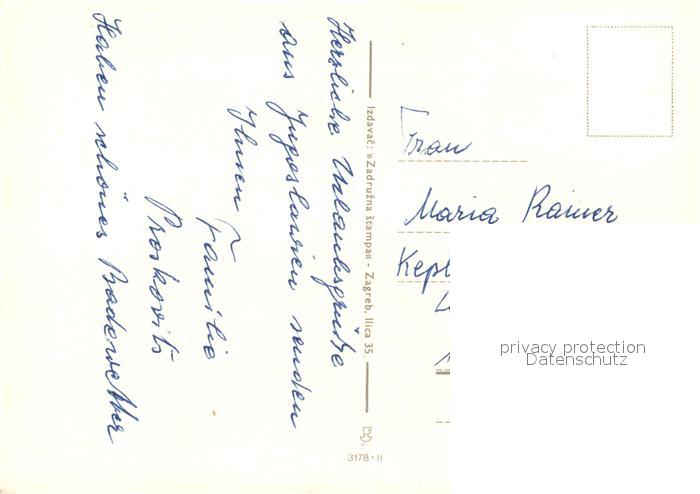 Herzliche Urlaubsgrüße
aus Jugoslawien senden
Ihnen Familie
Proskovits
Haben schönes Badewetter
Izdavač: »Zadružna štampa« - Zagreb, Ilica 35.
3178-II
Frau
Maria Rainer
Kepl
privacy protection
Datenschutz